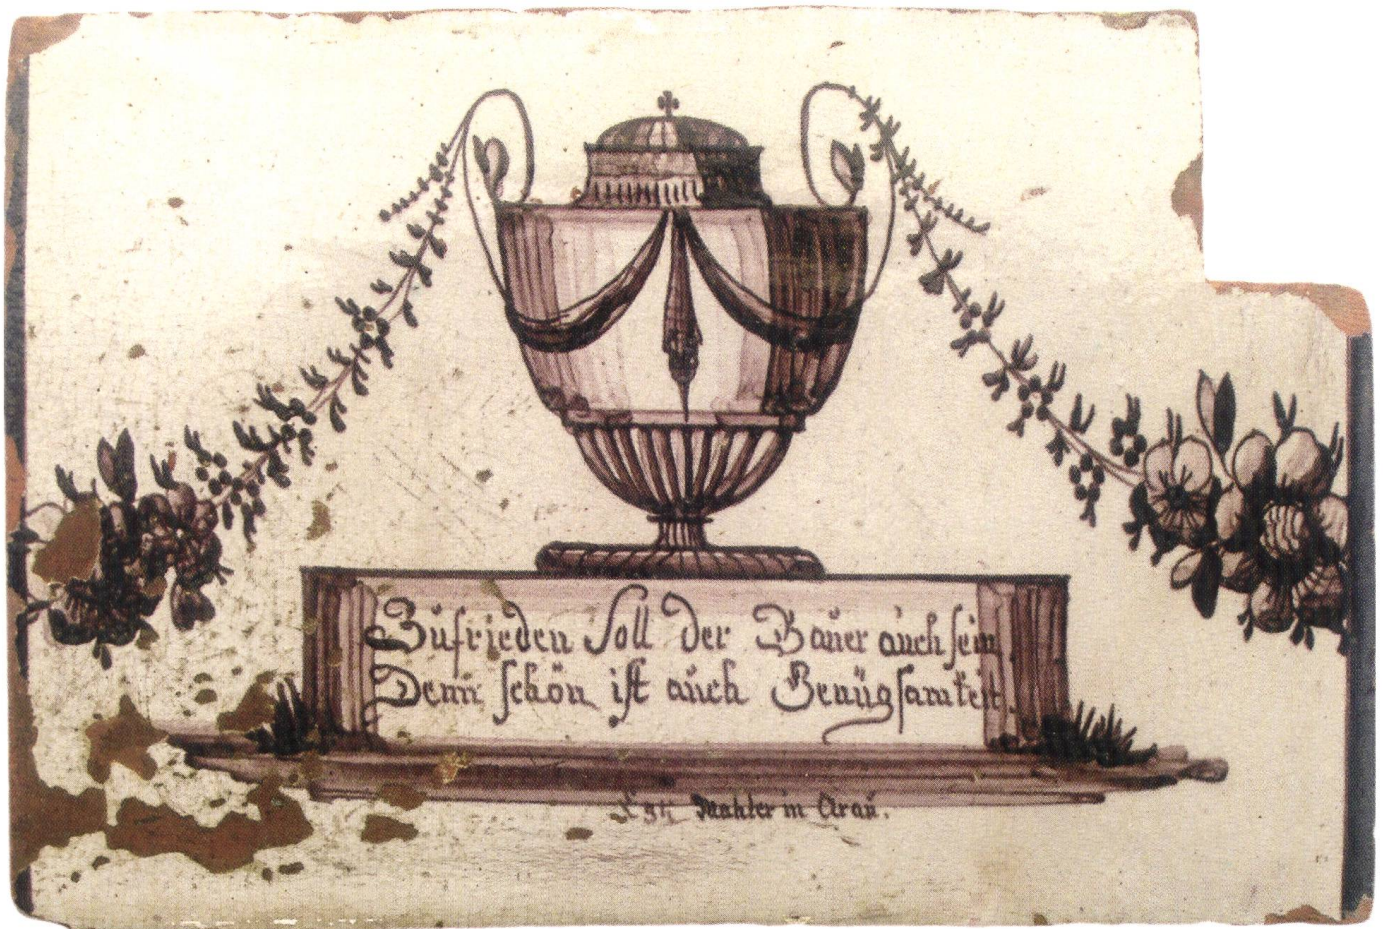 Zufrieden Soll der Bauer auch sein
Denn schön ist auch Genügsamkeit.
Egli Mahler in Arau.